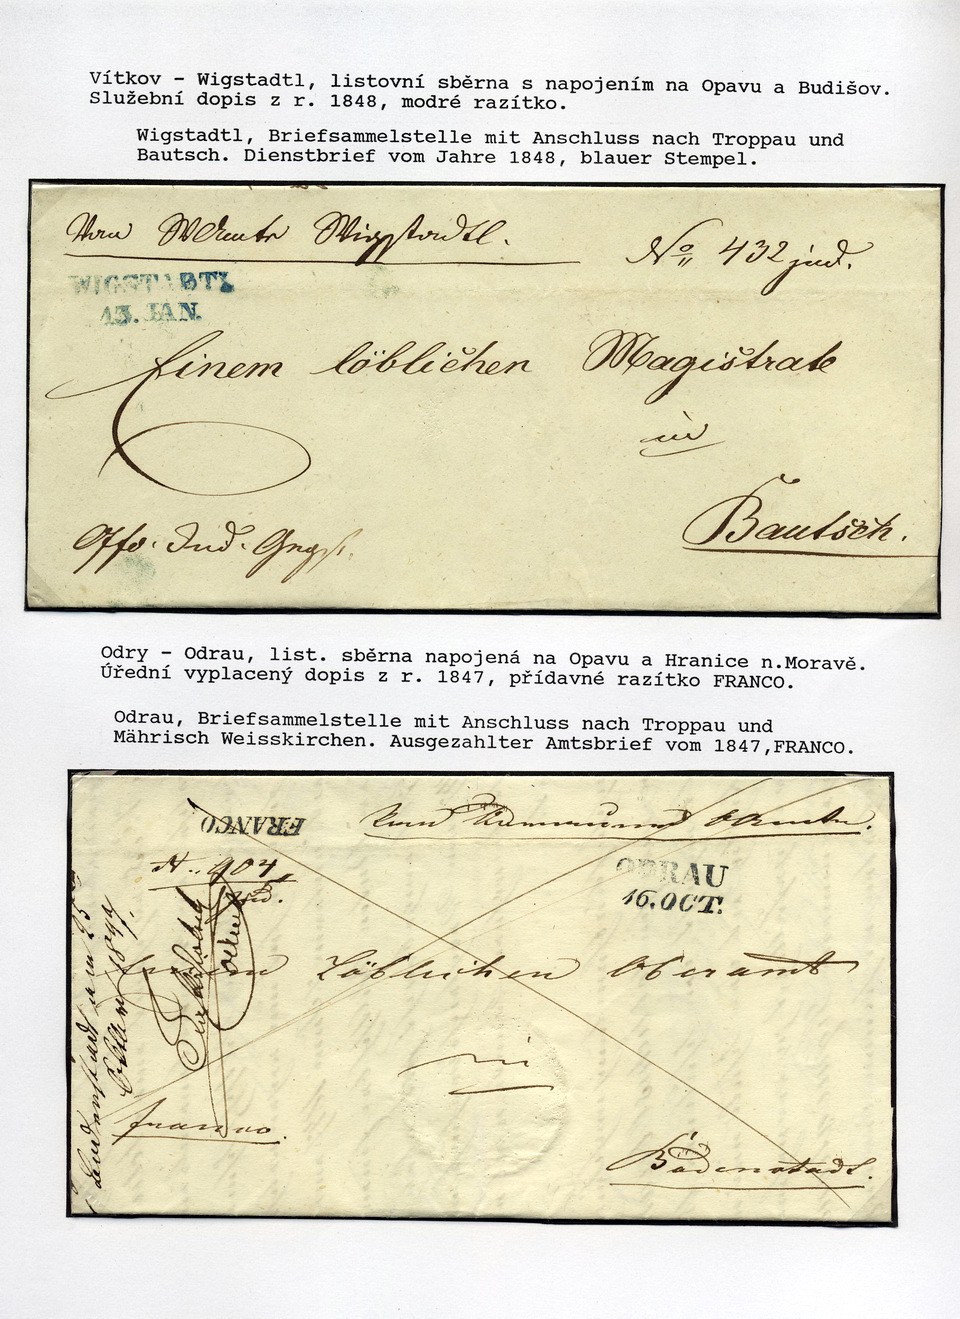 Vítkov - Wigstadtl, listovní sběrna s napojením na Opavu a Budišov.
Služební dopis z r. 1848, modré razítko.
Wigstadtl, Briefsammelstelle mit Anschluss nach Troppau und
Bautsch. Dienstbrief vom Jahre 1848, blauer Stempel.
Wigstadtl.
No 432 jud.
WIGSTADTL
13. JAN.
Einem löblichen Magistrate
in
Bautsch.
Offo. Jud.
Odry - Odrau, list. sběrna napojená na Opavu a Hranice n.Moravě.
Úřední vyplacený dopis z r. 1847, přídavné razítko FRANCO.
Odrau, Briefsammelstelle mit Anschluss nach Troppau und
Mährisch Weisskirchen. Ausgezahlter Amtsbrief vom 1847,FRANCO.
FRANCO
904
jud.
ODRAU
16. OCT.
Einem Löblichen Oberamt
in
franco.
Bodenstadt.